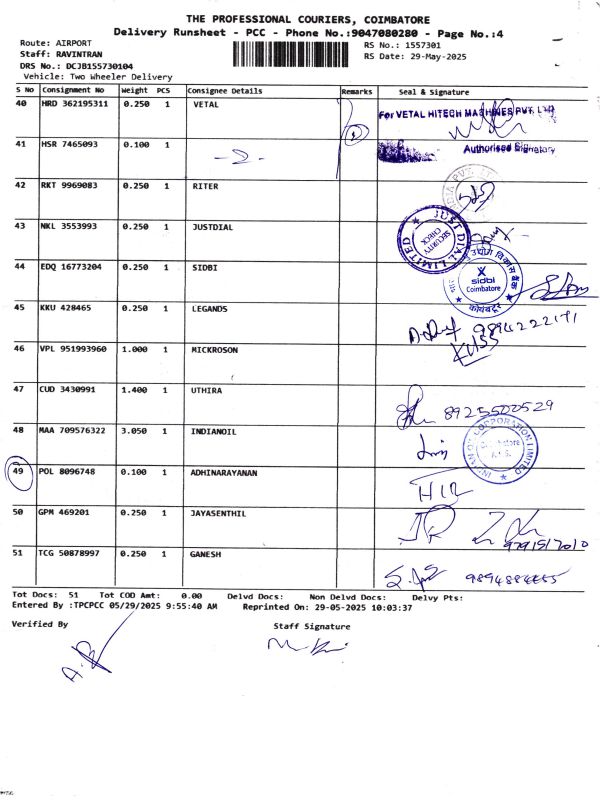 THE PROFESSIONAL COURIERS, COIMBATORE
Delivery Runsheet - PCC - Phone No.:9047080280 - Page No.:4
Route: AIRPORT
RS No.: 1557301
Staff: RAVINTRAN
RS Date: 29-May-2025
DRS No.: DCJB155730104
Vehicle: Two Wheeler Delivery
S No Consignment No Weight PCS Consignee Details Remarks Seal & Signature
40 HRD 362195311 0.250 1 VETAL
For VETAL HITECH MACHINES PVT. LTD
41 HSR 7465093 0.100 1 -2-
Authorised Signatory
42 RKT 9969083 0.250 1 RITER
43 NKL 3553993 0.250 1 JUSTDIAL
JUST DIAL LIMITED
SECURITY CHECK
44 EDQ 16773204 0.250 1 SIDBI
sidbi
Coimbatore
कोयंबटूर
45 KKU 428465 0.250 1 LEGANDS
9894222171
46 VPL 951993960 1.000 1 MICKROSON
47 CUD 3430991 1.400 1 UTHIRA
8925500529
48 MAA 709576322 3.050 1 INDIANOIL
INDIAN OIL CORPORATION LIMITED
49 POL 8096748 0.100 1 ADHINARAYANAN
50 GPM 469201 0.250 1 JAYASENTHIL
51 TCG 50878997 0.250 1 GANESH
Tot Docs: 51 Tot COD Amt: 0.00 Delvd Docs: Non Delvd Docs: Delvy Pts:
Entered By :TPCPCC 05/29/2025 9:55:40 AM Reprinted On: 29-05-2025 10:03:37
Verified By Staff Signature